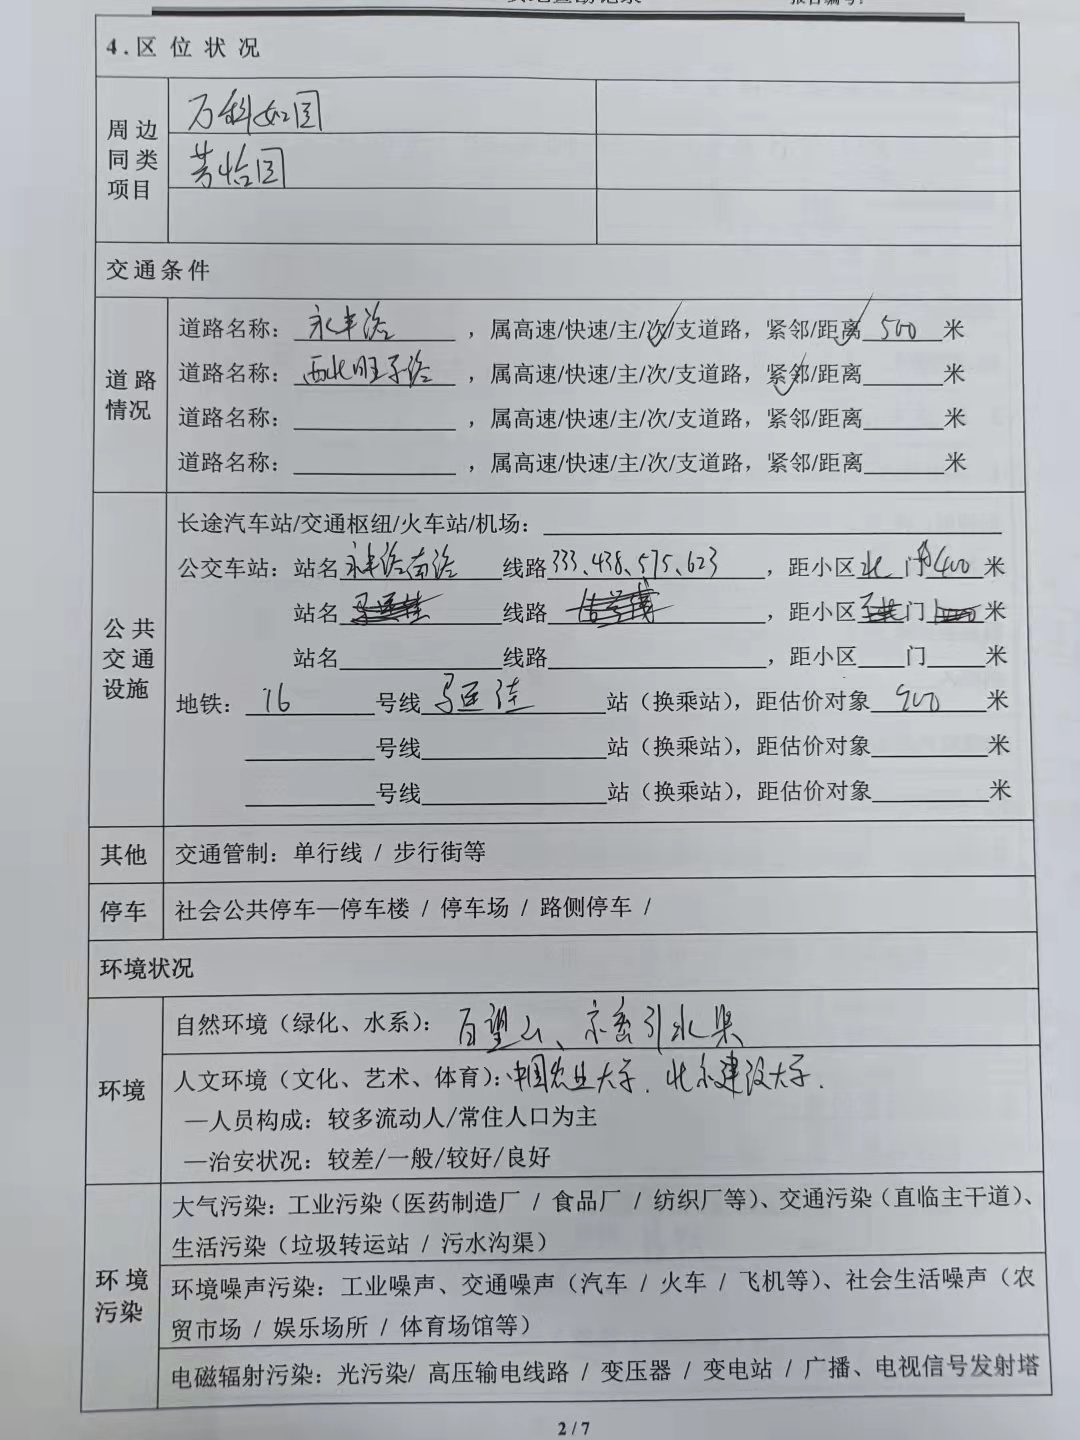 实地查勘记录
报告编号:
4.区位状况
周边同类项目
万科如园
芳怡园
交通条件
道路情况
道路名称：永丰路，属高速/快速/主/次/支道路，紧邻/距离500米
道路名称：西北旺东路，属高速/快速/主/次/支道路，紧邻/距离米
道路名称：，属高速/快速/主/次/支道路，紧邻/距离米
道路名称：，属高速/快速/主/次/支道路，紧邻/距离米
公共交通设施
长途汽车站/交通枢纽/火车站/机场：
公交车站：站名永丰路南站 线路333、438、575、623，距小区北门400米
站名 线路，距小区门米
站名 线路，距小区门米
地铁：16号线马连洼站（换乘站），距估价对象900米
号线站（换乘站），距估价对象米
号线站（换乘站），距估价对象米
其他 交通管制：单行线 / 步行街等
停车 社会公共停车—停车楼 / 停车场 / 路侧停车 /
环境状况
环境
自然环境（绿化、水系）：百望山、京密引水渠
人文环境（文化、艺术、体育）：中国农业大学、北京建设大学.
—人员构成：较多流动人/常住人口为主
—治安状况：较差/一般/较好/良好
环境污染
大气污染：工业污染（医药制造厂 / 食品厂 / 纺织厂等）、交通污染（直临主干道）、
生活污染（垃圾转运站 / 污水沟渠）
环境噪声污染：工业噪声、交通噪声（汽车 / 火车 / 飞机等）、社会生活噪声（农
贸市场 / 娱乐场所 / 体育场馆等）
电磁辐射污染：光污染/ 高压输电线路 / 变压器 / 变电站 / 广播、电视信号发射塔
2 / 7